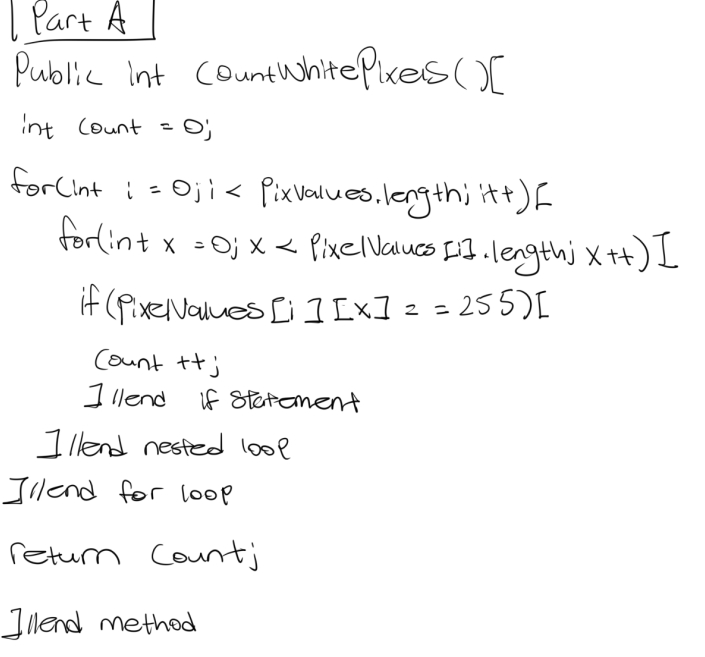 Part A
Public int CountWhitePixels()[
int count = 0;
for(int i = 0; i < Pixvalues.length; i++)[
for(int x = 0; x < PixelValues [i].length; x++)]
if (PixelValues [i] [x] = = 255)[
Count ++;
] //end if statement
] //end nested loop
] //end for loop
return Count;
] //end method